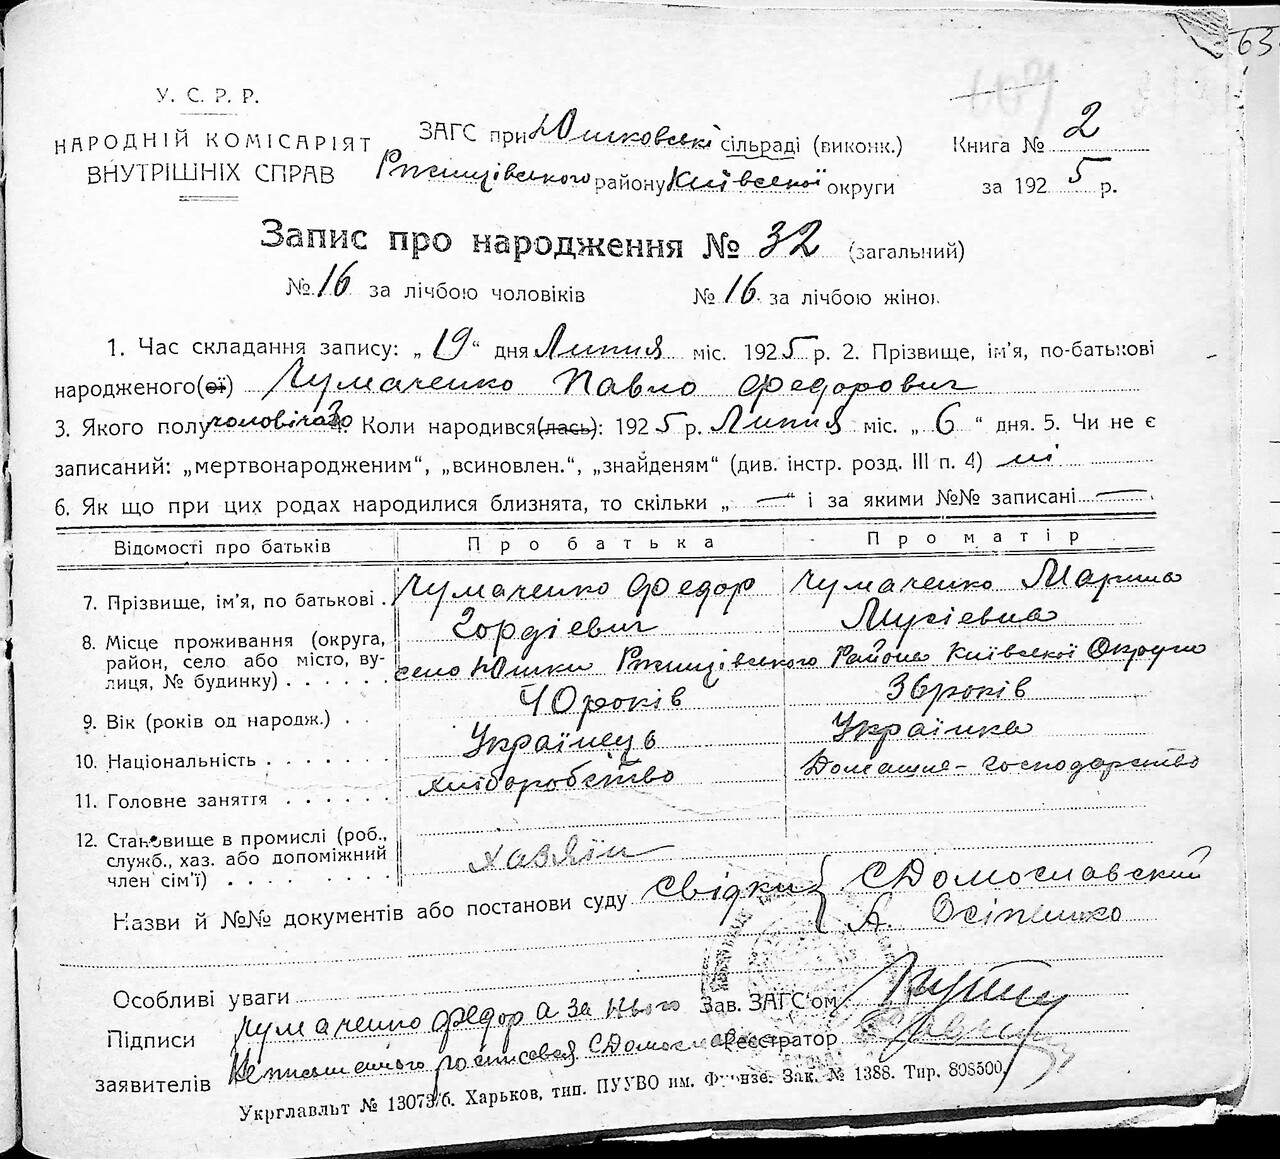 63
У. С. Р. Р.
НАРОДНІЙ КОМІСАРІЯТ
ВНУТРІШНІХ СПРАВ
ЗАГС при Юшковські сільраді (виконк.)
Ржищівського району Київської округи
Книга № 2
за 1925 р.
Запис про народження № 32 (загальний)
№ 16 за лічбою чоловіків № 16 за лічбою жінок
1. Час складання запису: „19“ дня Липня міс. 1925 р. 2. Прізвище, ім’я, по-батькові
народженого(ої) Чумаченко Павло Федорович
3. Якого полу чоловічого 4. Коли народився(лась): 1925 р. Липня міс. „6“ дня. 5. Чи не є
записаний: „мертвонародженим“, „всиновлен.“, „знайденям“ (див. інстр. розд. III п. 4) ні
6. Як що при цих родах народилися близнята, то скільки „—“ і за якими №№ записані —
Відомості про батьків Про батька Про матір
7. Прізвище, ім’я, по батькові . Чумаченко Федор Гордієвич Чумаченко Марина Мусієвна
8. Місце проживання (округа, район, село або місто, вулиця, № будинку) . . . . . село Юшки Ржищівського Района Київської Округи
9. Вік (років од народж.) . . 40 років 36 років
10. Національність . . . . . . . Українець Українка
11. Головне заняття . . . . . . хліборобство Домашне-господарство
12. Становище в промислі (роб., служб., хаз. або допоміжний член сім’ї) . . . . . . . . хазяїн
Назви й №№ документів або постанови суду Свідки { С Домославский
А. Осіпенко
Особливі уваги
Підписи Чумаченко Федор а за нього Зав. ЗАГС’ом
заявителів неписьменого росписався С Домославский Реєстратор
Укрглавльт № 13073/б. Харьков, тип. ПУУВО им. Фрунзе. Зак. № 1388. Тир. 808500.